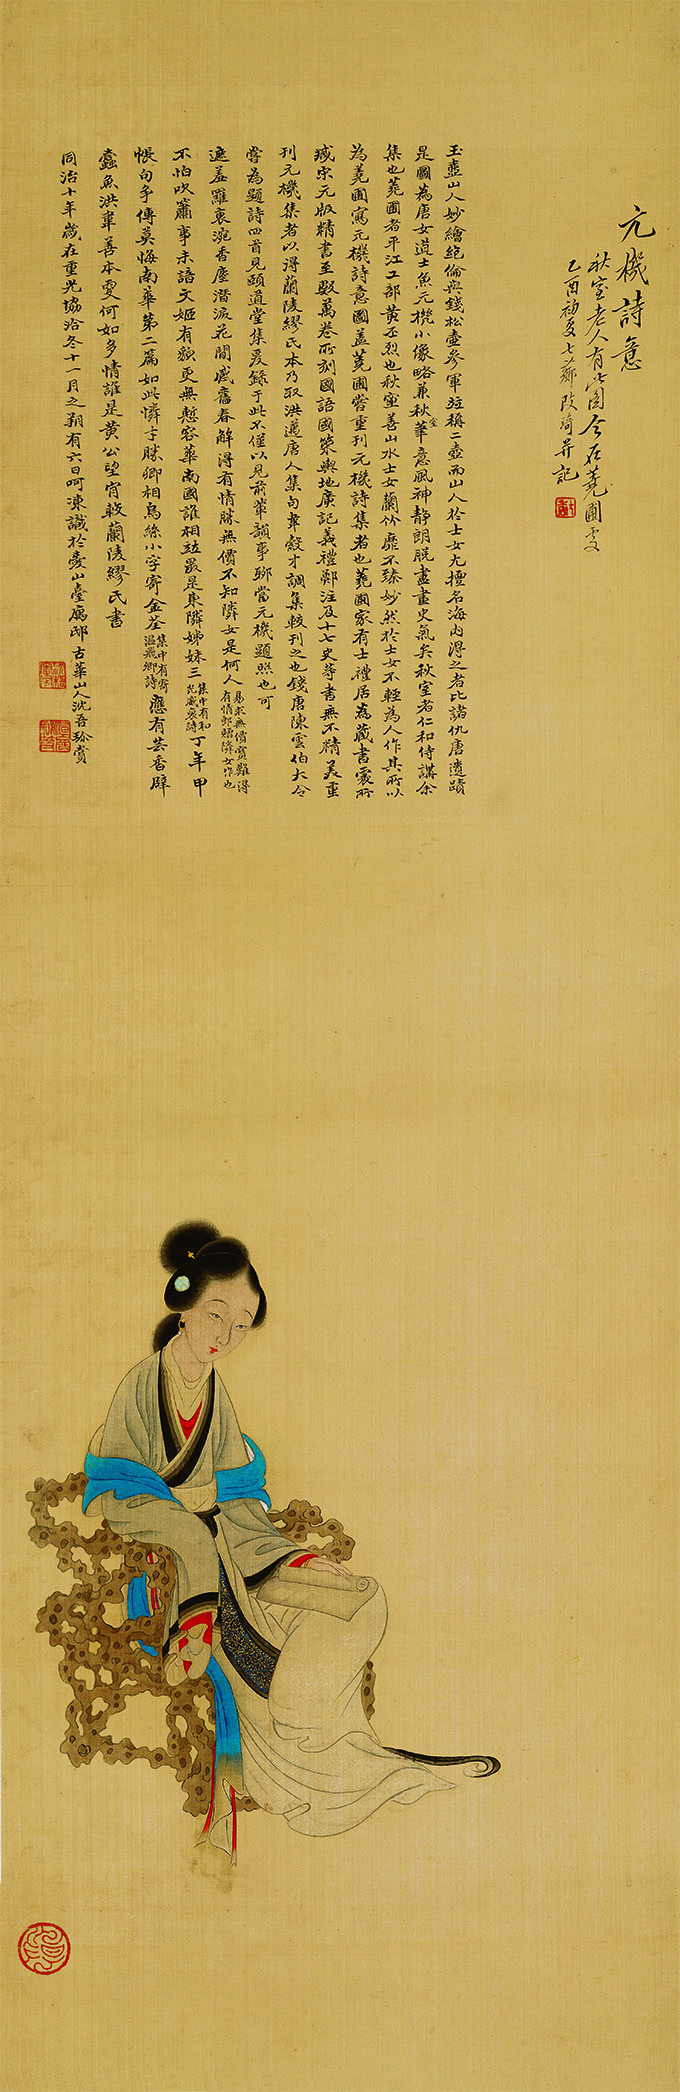 元機詩意
秋室老人有此圖今在蕘圃處
乙酉初夏七薌改琦并記
玉壺山人妙繪絕倫與錢松壺參軍竝稱二壺而山人於士女尤擅名海內得之者比諸仇唐遺蹟
是圖為唐女道士魚元機小像略兼秋室華意風神靜朗脫盡畫史氣矣秋室者仁和侍講余
集也蕘圃者平江工部黃丕烈也秋室善山水士女蘭竹靡不臻妙然於士女不輕為人作其所以
為蕘圃寫元機詩意圖蓋蕘圃嘗重刊元機詩集者也蕘圃家有士禮居為藏書處所
臧宋元版精書至數萬卷所刻國語國策輿地廣記義禮鄭注及十七史等書無不精美重
刊元機集者以得蘭陵繆氏本乃取洪邁唐人集句韋縠才調集較刊之也錢唐陳雲伯大令
嘗為題詩四首見頤道堂集爰錄于此不僅以見前輩韻事聊當元機題照也可
遮羞羅裏涴香塵潛淚花間感舊春解得有情勝無價不知隣女是何人易求無價寶難得有情郎贈隣女作也
不怕吹簫事未諳文姬有額更無慙容華南國誰相竝最是東隣姊妹三集中有和光威裒詩丁年甲
帳句爭傳莫悔南華第二篇如此憐才勝卿相烏絲小字寄金荃集中有寄溫飛卿詩應有芸香辟
蠹魚洪韋善本夐何如多情誰是黃公望宵較蘭陵繆氏書
同治十年歲在重光協洽冬十一月之朔有六日呵凍識於壺山臺廨邸古華山人沈吾珍賞